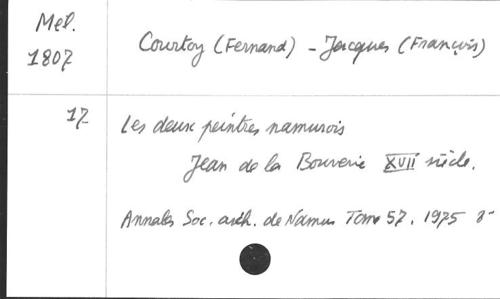 Mel.
1807
Courtoy (Fernand) - Jacques (François)
17
Les deux peintres namurois
Jean de la Bouverie XVII siècle.
Annales Soc. arch. de Namur Tome 57. 1975